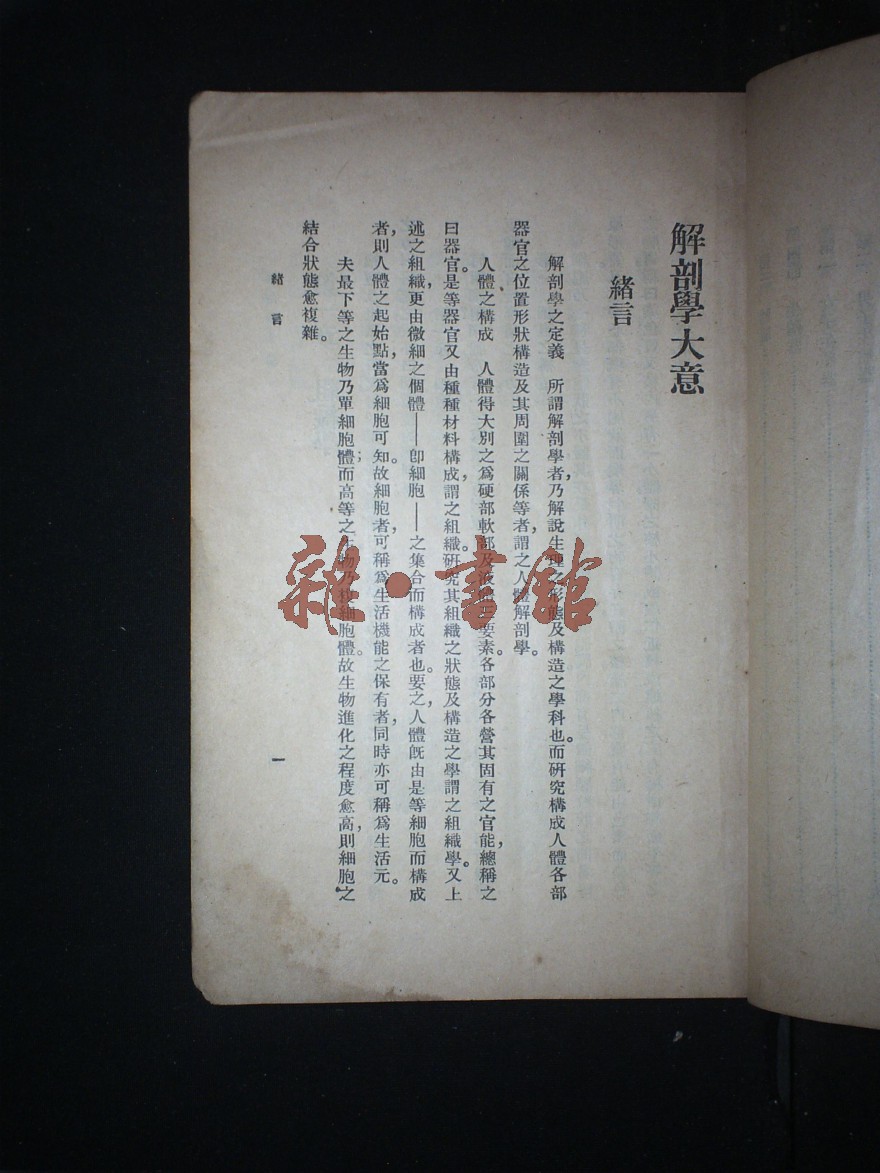 解剖學大意
緒言
解剖學之定義　所謂解剖學者,乃解說生理之形態及構造之學科也。而硏究構成人體各部
器官之位置形狀構造及其周圍之關係等者,謂之人體解剖學。
人體之構成　人體得大別之爲硬部軟部及液體三要素。各部分各營其固有之官能,總稱之
曰器官。是等器官又由種種材料構成,謂之組織。硏究其組織之狀態及構造之學謂之組織學。又上
述之組織,更由微細之個體——卽細胞——之集合而構成者也。要之,人體旣由是等細胞而構成
者,則人體之起始點,當爲細胞可知。故細胞者,可稱爲生活機能之保有者,同時亦可稱爲生活元。
夫最下等之生物乃單細胞體;而高等之生物乃複細胞體。故生物進化之程度愈高,則細胞之
結合狀態愈複雜。
緒言
一
雜·書館